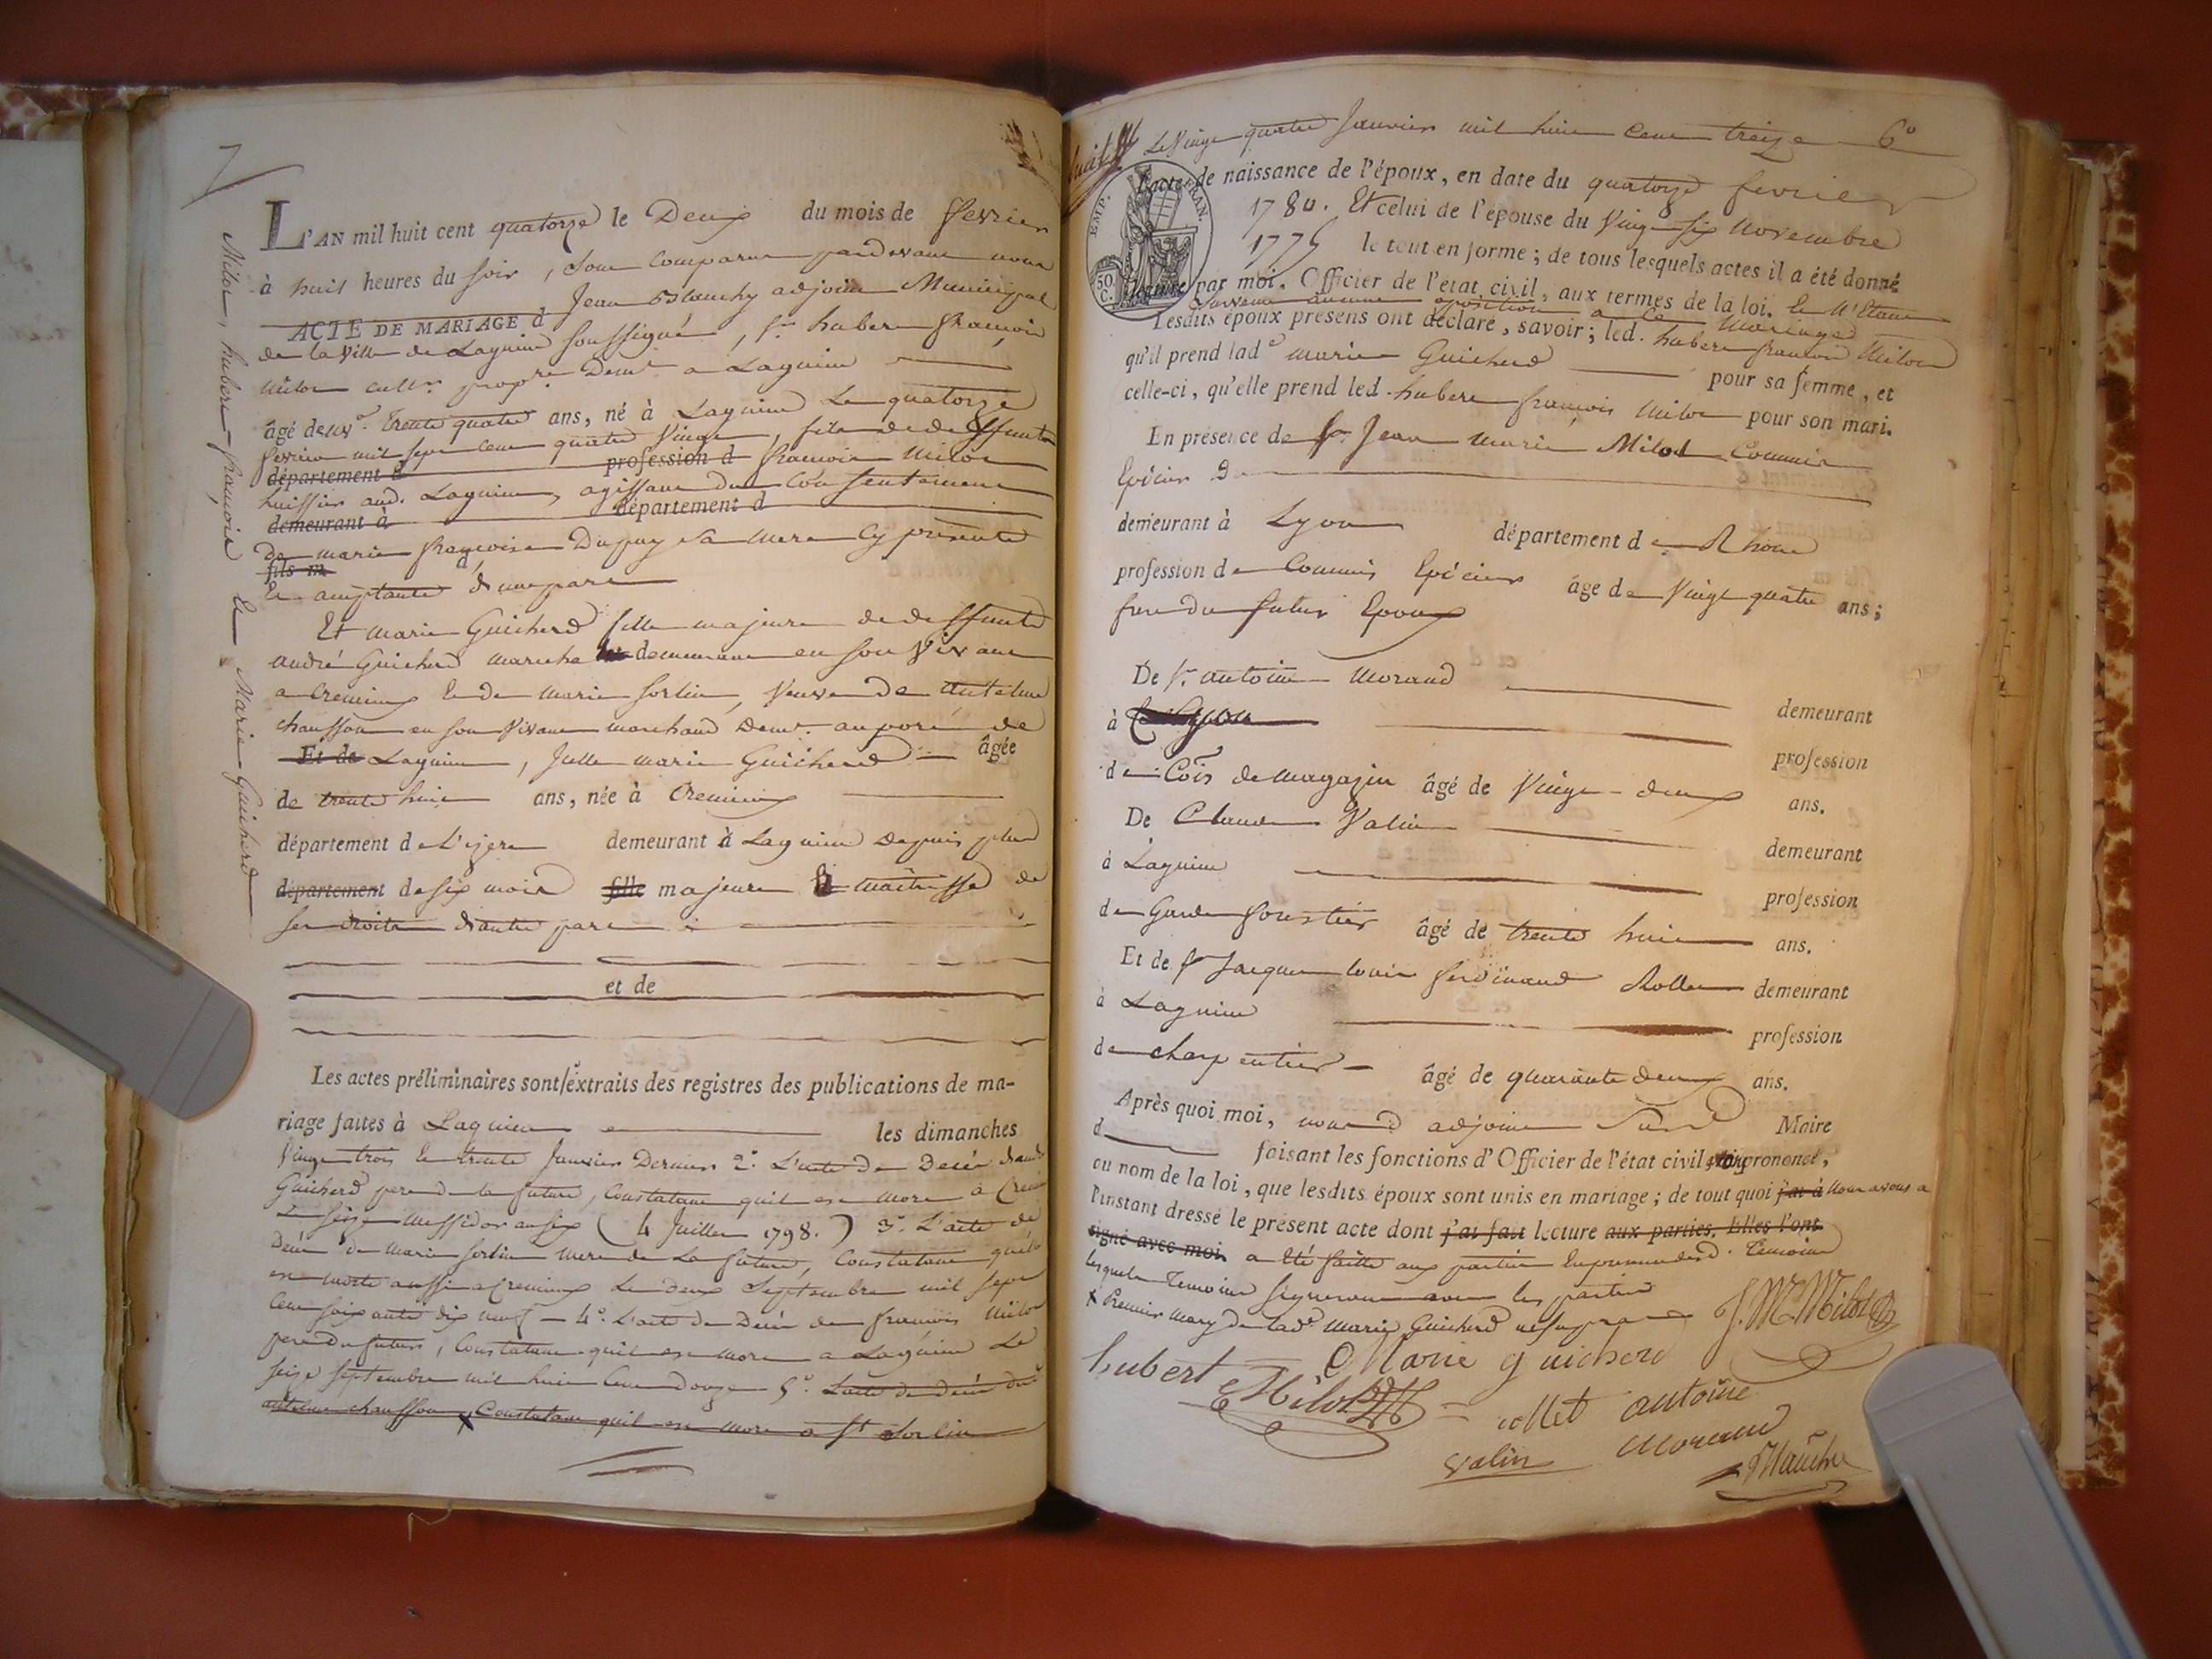 7
Milot, hubert françois Et Marie Guicherd
L'AN mil huit cent quatorze le Deux du mois de fevrier
à huit heures du soir, Sont Comparus pardevant nous
Jean Blanchy adjoint Municipal
ACTE DE MARIAGE d
de la Ville de Lagnieu soussigné, sr. hubert françois
Milot cultr. propre. Demt. a Lagnieu
âgé de trente quatre ans, né à Lagnieu Le quatorze
fevrier mil sept Cent quatre Vingt, fils de deffunt
département d profession d françois Milot
huissier aud. Lagnieu, agissant du Consentement
demeurant à département d
de marie françoise Dupuy sa mere Cy présente
fils m
Et acceptante d'une part
Et marie Guicherd fille majeure de deffunts
andré Guicherd demeurant en son Vivant
a Cremieux Et de marie sorlin, Veuve de antelme
chausson en son Vivant marchand Demt. au port de
Et de Lagnieu, Julle marie Guicherd âgée
de trente huit ans, née à Cremieux
département de L'izere demeurant à Lagnieu Depuis plus
département de six mois fille majeure Et maîtresse de
ses droits d'autre part
et de
Les actes préliminaires sont extraits des registres des publications de ma-
riage faites à Lagnieu les dimanches
Vingt trois Et trente Janvier Dernier 2°. L'acte de Decès d'andé.
Guicherd pere de la future, Constatant quil est mort à Crem
Le seize messidor an six (4 Juillet 1798.) 3°. L'acte de
Decès de marie sorlin mere de La future, Constatant quelle
est morte aussi a Cremieux Le deux Septembre mil sept
Cent soixante dix neuf — 4°. L'acte de Decès de françois Milot
pere du futur, Constatant quil est mort a Lagnieu Le
seize septembre mil huit Cent Douze 5°. L'acte de decès dud
antelme chausson, x Constatant quil est mort a St Sorlin
Le Vingt quatre Janvier mil huit Cent treize 6°
EMP. FRAN.
50 C.
L'acte de naissance de l'époux, en date du quatorze fevrier
1780. Et celui de l'épouse du Vingt six Novembre
1775 le tout en forme; de tous lesquels actes il a été donné
lecture par moi, Officier de l'état civil, aux termes de la loi. Et N'Etant
Survenu aucune oposition a Ce Mariage
Lesdits époux présens ont déclaré, savoir; led. hubert françois Milot
qu'il prend lade marie Guicherd pour sa femme, et
celle-ci, qu'elle prend led. hubert françois Milot pour son mari.
En présence de sr. Jean marie Milot Commis
Epicier D
demeurant à Lyon département de Rhone
profession de Commis Epicier âgé de Vingt quatre ans;
frere du futur Epoux
De sr. antoine Morand demeurant
à Lyon profession
de Cois de magazin âgé de Vingt-deux ans.
De Claude Valin demeurant
à Lagnieu profession
de Garde forestier âgé de trente huit ans.
Et de sr Jacques louis ferdinand Rollet demeurant
à Lagnieu profession
de charpentier âgé de quarante deux ans.
Après quoi moi, nous adjoint Susd Maire
d faisant les fonctions d'Officier de l'état civil prononcé,
au nom de la loi, que lesdits époux sont unis en mariage; de tout quoi j'ai à Nous avons a
l'instant dressé le présent acte dont j'ai fait lecture aux parties. Elles l'ont
signé avec moi a Eté faitte aux parties En presence desd. temoins
lesquels temoins signeront avec les parties
x Premier mary de lade. marie Guicherd J. M. Milot
hubert Milot Marie guicherd
collet antoine
valin morand
Blanchy